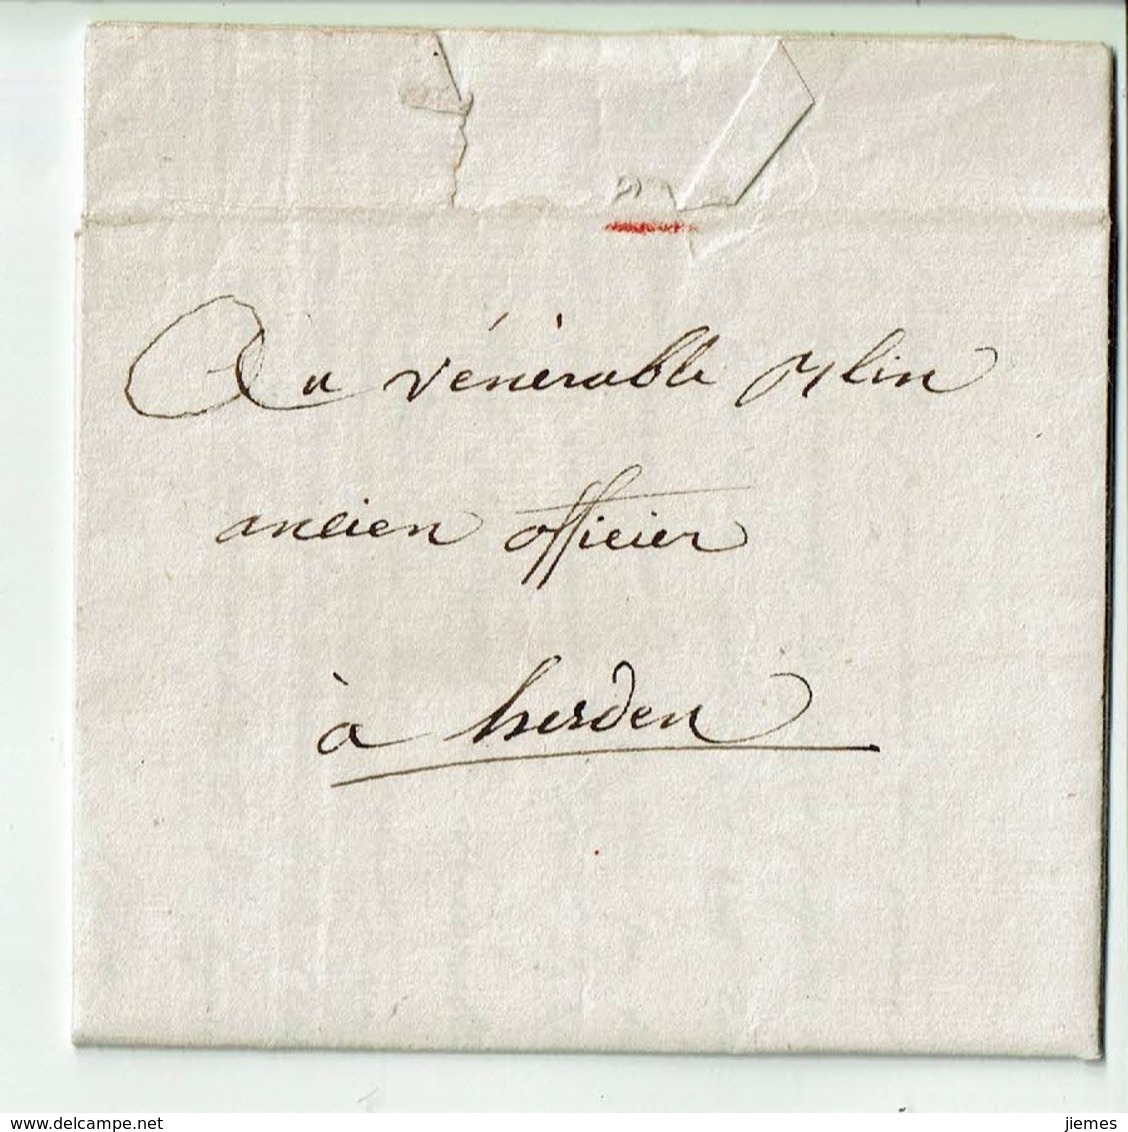 Au vénérable
ancien officier
à herden
delcampe.net
jiemes